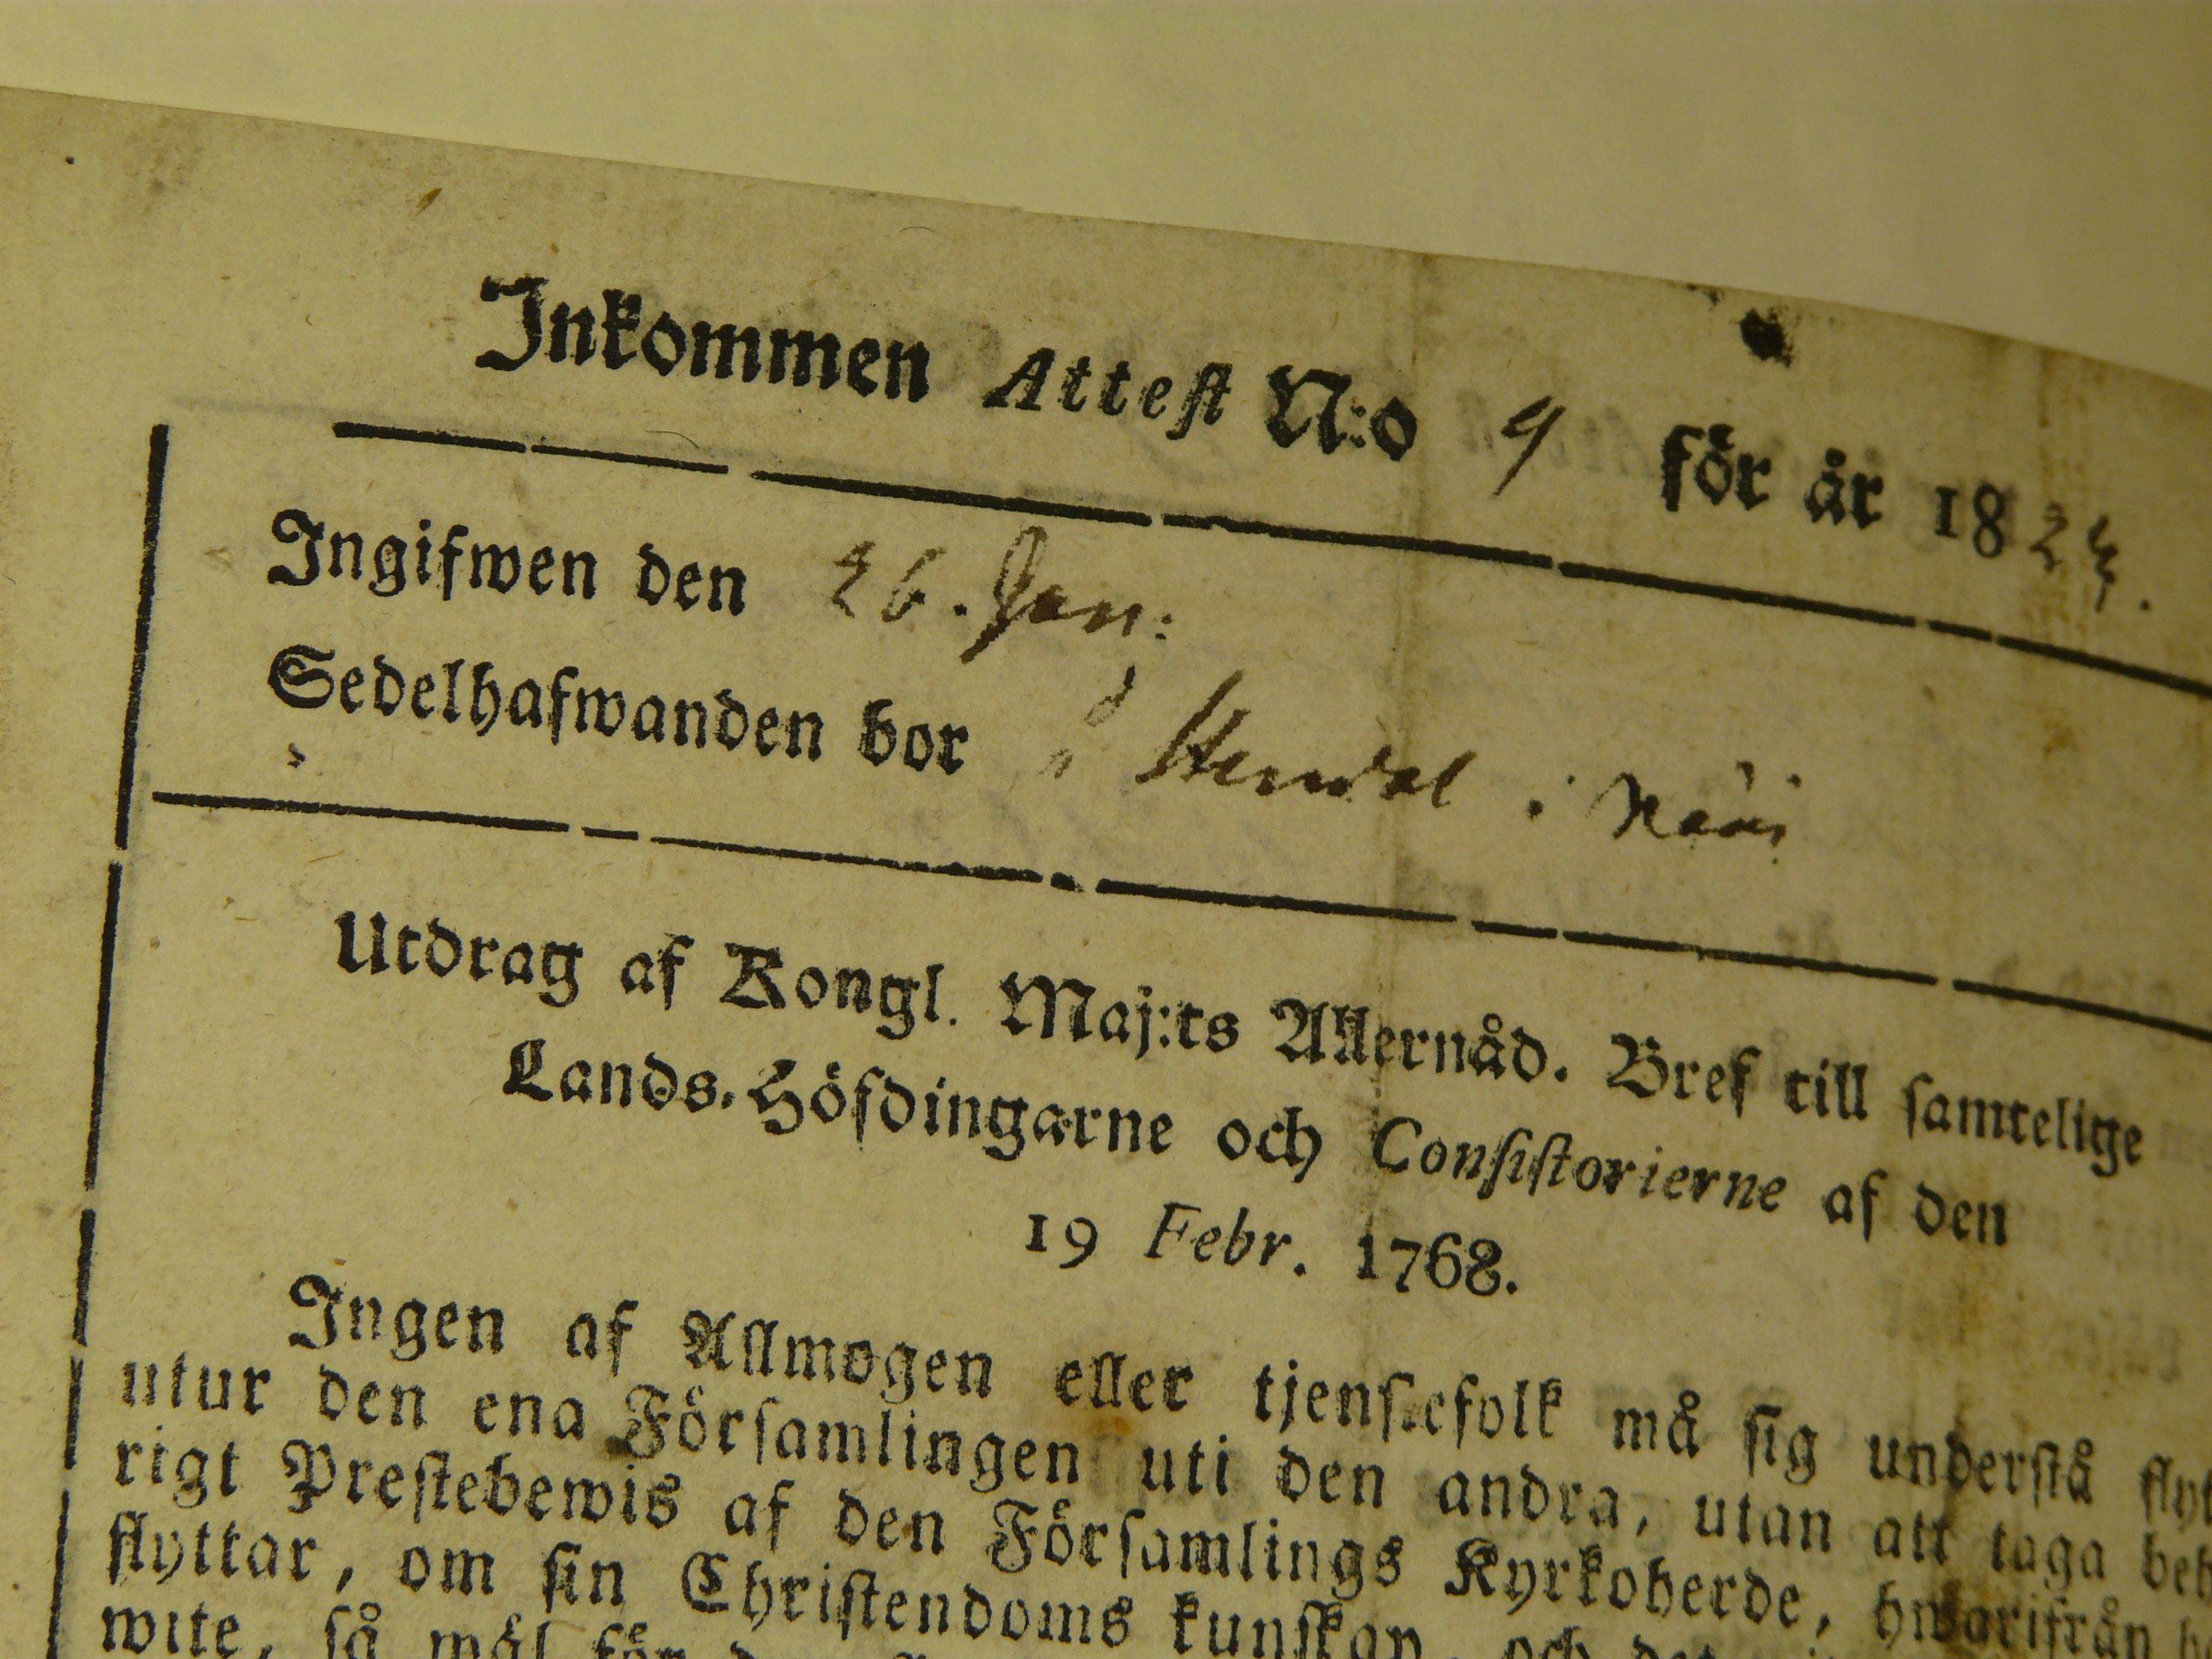 Inkommen Attest N:o 9 för år 1824.
Ingifwen den 26. Jan:
Sedelhafwanden bor i Stendal i Näås
Utdrag af Kongl. Maj:ts Allernåd. Bref till samtelige
Lands-Höfdingarne och Consistorierne af den
19 Febr. 1768.
Ingen af Allmogen eller tjenstefolk må sig understå
utur den ena Församlingen uti den andra, utan att taga
rigt Prestebewis af den Församlings Kyrkoherde, hwarifrån
flyttar, om sin Christendoms kunskap, och det
wite, så wäl för